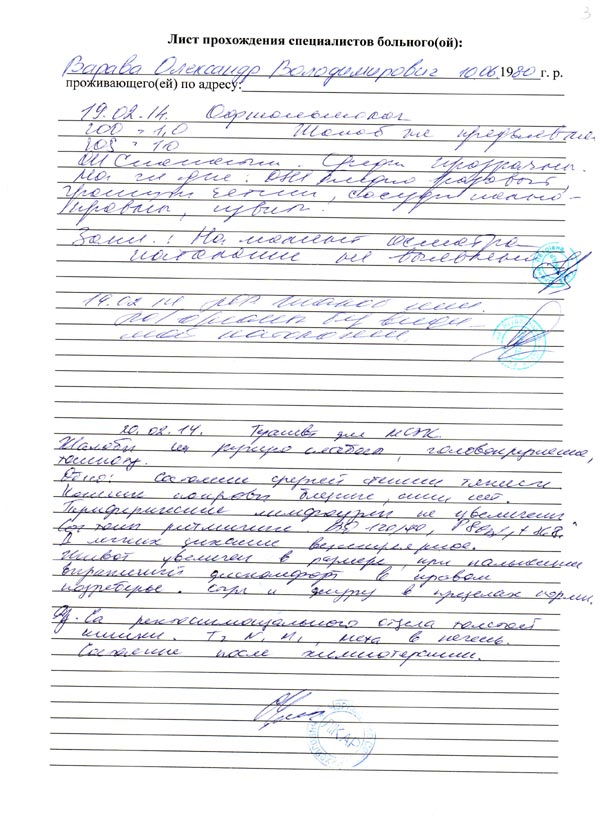 3
Лист прохождения специалистов больного(ой):
Варава Олександр Володимирович 10.06.1980 г. р.
проживающего(ей) по адресу:
19.02.14. Офтальмолог
Жалоб не предъявляет
= 1,0
= 1,0
OU Спокойны. Среды прозрачны.
На гл. дне: ДЗН бледно-розовый,
границы четкие, сосуды
Закл.: На момент осмотра
патологии не выявлено
19.02.14
без види-
мой патологии
20.02.14. Терапевт для МСЭК.
Жалобы на слабость, головокружение,
тошноту.
Об-но: Состояние средней степени тяжести
Кожные покровы бледные, сыпи нет.
Периферические лимфоузлы не увеличены
тоны ритмичные 120/70,
В легких дыхание везикулярное.
Живот увеличен в размере, при пальпации
дискомфорт в правом
подреберье. Стул и диурез в пределах нормы.
Ca ректосигмоидального отдела толстой
кишки. N1 M1, в печень.
Состояние после химиотерапии.
ЛІКАР